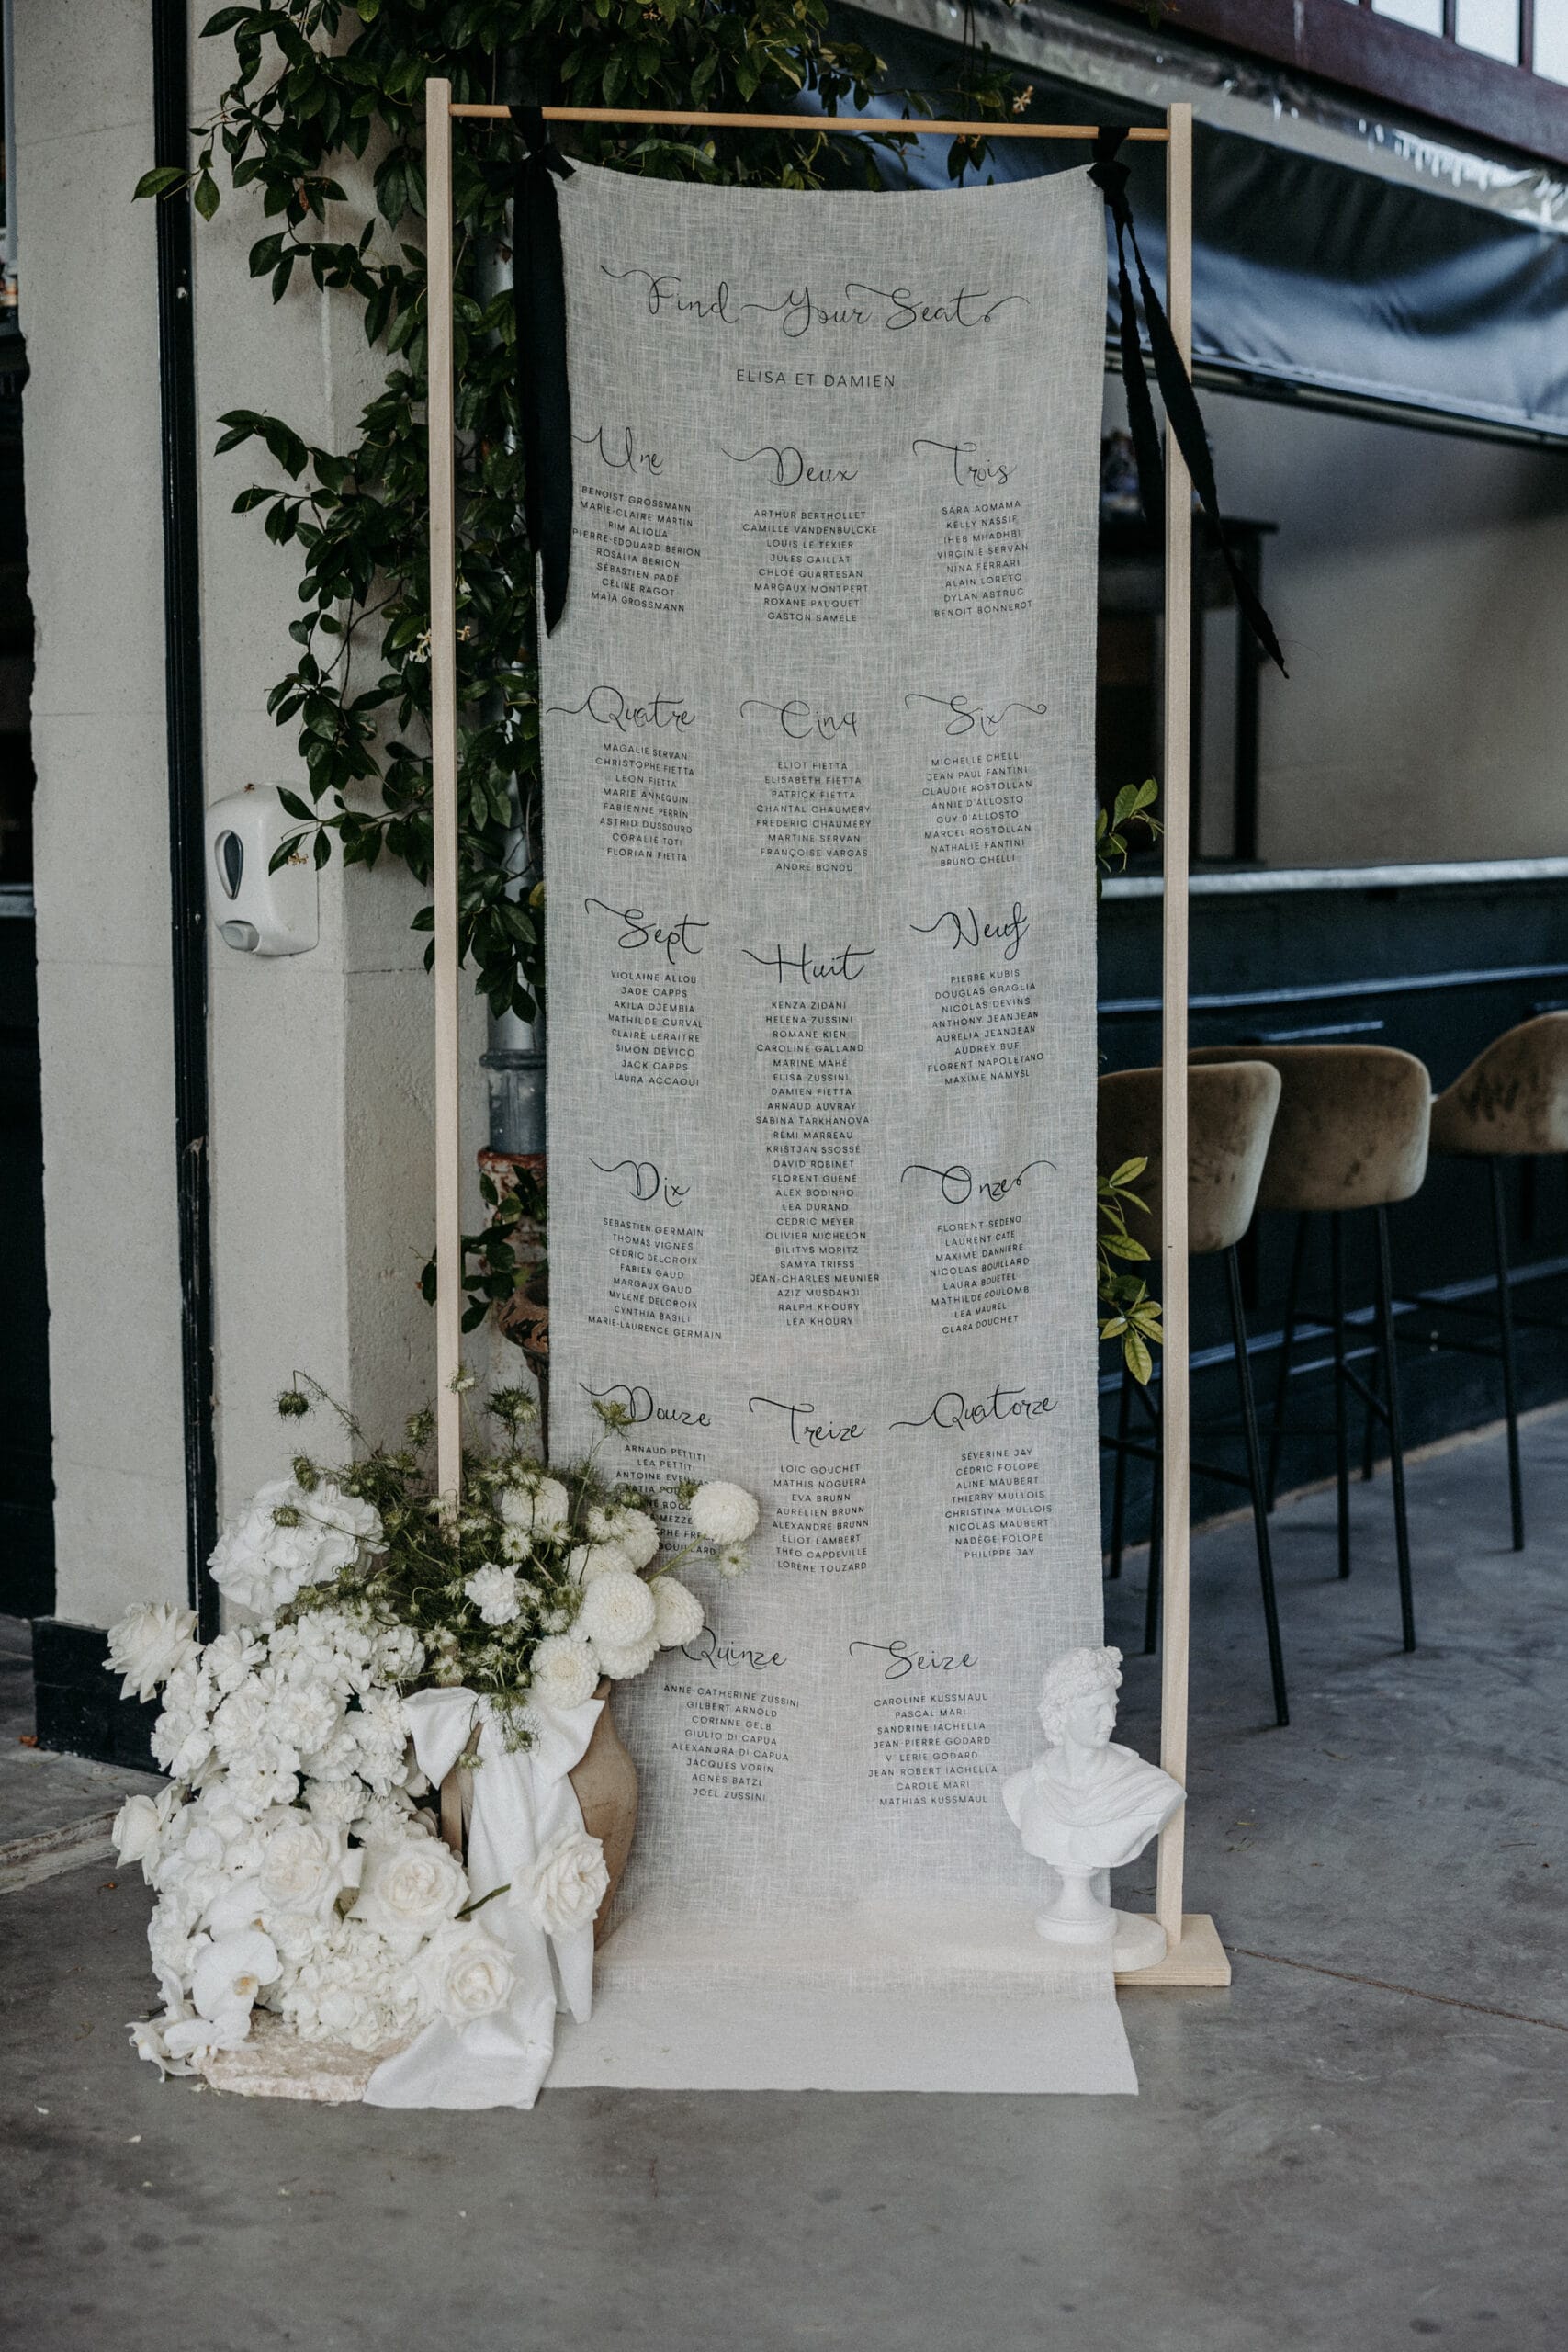 Find Your Seat
ELISA ET DAMIEN
Une
BENOIST GROSSMANN
MARIE-CLAIRE MARTIN
RIM ALIOUA
PIERRE-EDOUARD BERION
ROSALIA BERION
SÉBASTIEN PADÉ
CÉLINE RAGOT
MAÏA GROSSMANN
Deux
ARTHUR BERTHOLLET
CAMILLE VANDENBULCKE
LOUIS LE TEXIER
JULES GAILLAT
CHLOÉ QUARTESAN
MARGAUX MONTPERT
ROXANE PAUQUET
GASTON SAMELE
Trois
SARA AQMAMA
KELLY NASSIF
IHEB MHADHBI
VIRGINIE SERVAN
NINA FERRARI
ALAIN LORETO
DYLAN ASTRUC
BENOIT BONNEROT
Quatre
MAGALIE SERVAN
CHRISTOPHE FIETTA
LEON FIETTA
MARIE ANNEQUIN
FABIENNE PERRIN
ASTRID DUSSOURD
CORALIE TOTI
FLORIAN FIETTA
Cinq
ELIOT FIETTA
ELISABETH FIETTA
PATRICK FIETTA
CHANTAL CHAUMERY
FREDERIC CHAUMERY
MARTINE SERVAN
FRANÇOISE VARGAS
ANDRE BONDU
Six
MICHELLE CHELLI
JEAN PAUL FANTINI
CLAUDIE ROSTOLLAN
ANNIE D'ALLOSTO
GUY D'ALLOSTO
MARCEL ROSTOLLAN
NATHALIE FANTINI
BRUNO CHELLI
Sept
VIOLAINE ALLOU
JADE CAPPS
AKILA DJEMBIA
MATHILDE CURVAL
CLAIRE LERAITRE
SIMON DEVICO
JACK CAPPS
LAURA ACCAOUI
Huit
KENZA ZIDANI
HELENA ZUSSINI
ROMANE KIEN
CAROLINE GALLAND
MARINE MAHÉ
ELISA ZUSSINI
DAMIEN FIETTA
ARNAUD AUVRAY
SABINA TARKHANOVA
RÉMI MARREAU
KRISTJAN SSOSSÉ
DAVID ROBINET
FLORENT GUENÉ
ALEX BODINHO
LEA DURAND
CEDRIC MEYER
OLIVIER MICHELON
BILITYS MORITZ
SAMYA TRIFSS
JEAN-CHARLES MEUNIER
AZIZ MUSDAHJI
RALPH KHOURY
LÉA KHOURY
Neuf
PIERRE KUBIS
DOUGLAS GRAGLIA
NICOLAS DEVINS
ANTHONY JEANJEAN
AURELIA JEANJEAN
AUDREY BUF
FLORENT NAPOLETANO
MAXIME NAMYSL
Dix
SEBASTIEN GERMAIN
THOMAS VIGNES
CÉDRIC DELCROIX
FABIEN GAUD
MARGAUX GAUD
MYLENE DELCROIX
CYNTHIA BASILI
MARIE-LAURENCE GERMAIN
Onze
FLORENT SEDENO
LAURENT CATE
MAXIME DANNIERE
NICOLAS BOUILLARD
LAURA BOUETEL
MATHILDE COULOMB
LÉA MAUREL
CLARA DOUCHET
Douze
ARNAUD PETTITI
LÉA PETTITI
ANTOINE
Treize
LOIC GOUCHET
MATHIS NOGUERA
EVA BRUNN
AURELIEN BRUNN
ALEXANDRE BRUNN
ELIOT LAMBERT
THÉO CAPDEVILLE
LORÈNE TOUZARD
Quatorze
SÉVERINE JAY
CÉDRIC FOLOPE
ALINE MAUBERT
THIERRY MULLOIS
CHRISTINA MULLOIS
NICOLAS MAUBERT
NADÈGE FOLOPE
PHILIPPE JAY
Quinze
ANNE-CATHERINE ZUSSINI
GILBERT ARNOLD
CORINNE GELB
GIULIO DI CAPUA
ALEXANDRA DI CAPUA
JACQUES VORIN
AGNÈS BATZL
JOEL ZUSSINI
Seize
CAROLINE KUSSMAUL
PASCAL MARI
SANDRINE IACHELLA
JEAN PIERRE GODARD
V LERIE GODARD
JEAN ROBERT IACHELLA
CAROLE MARI
MATHIAS KUSSMAUL